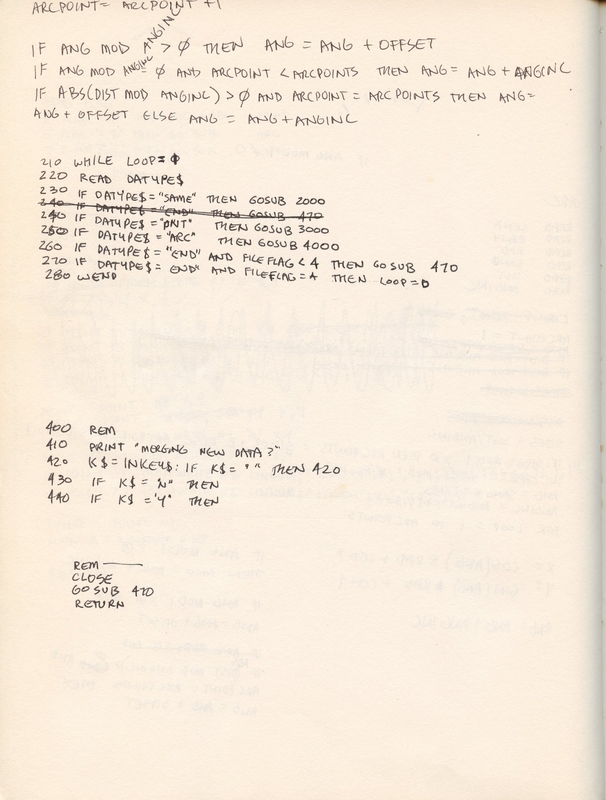 ARCPOINT = ARCPOINT +1
IF ANG MOD ANGINC > Ø THEN ANG = ANG + OFFSET
IF ANG MOD ANGINC = Ø AND ARCPOINT < ARCPOINTS THEN ANG = ANG + ANGINC
IF ABS(DIST MOD ANGINC) > Ø AND ARCPOINT = ARCPOINTS THEN ANG =
ANG + OFFSET ELSE ANG = ANG + ANGINC
210 WHILE LOOP = Ø
220 READ DATYPE$
230 IF DATYPE$ = "SAME" THEN GOSUB 2000
240 IF DATYPE$ = "END" THEN GOSUB 470
240 IF DATYPE$ = "PNT" THEN GOSUB 3000
250 IF DATYPE$ = "ARC" THEN GOSUB 4000
260 IF DATYPE$ = "END" AND FILEFLAG < 4 THEN GOSUB 470
270 IF DATYPE$ = END" AND FILEFLAG = 4 THEN LOOP = 0
280 WEND
400 REM
410 PRINT "MERGING NEW DATA?"
420 K$ = INKEY$: IF K$ = " " THEN 420
430 IF K$ = "N" THEN
440 IF K$ = "Y" THEN
REM
CLOSE
GOSUB 470
RETURN